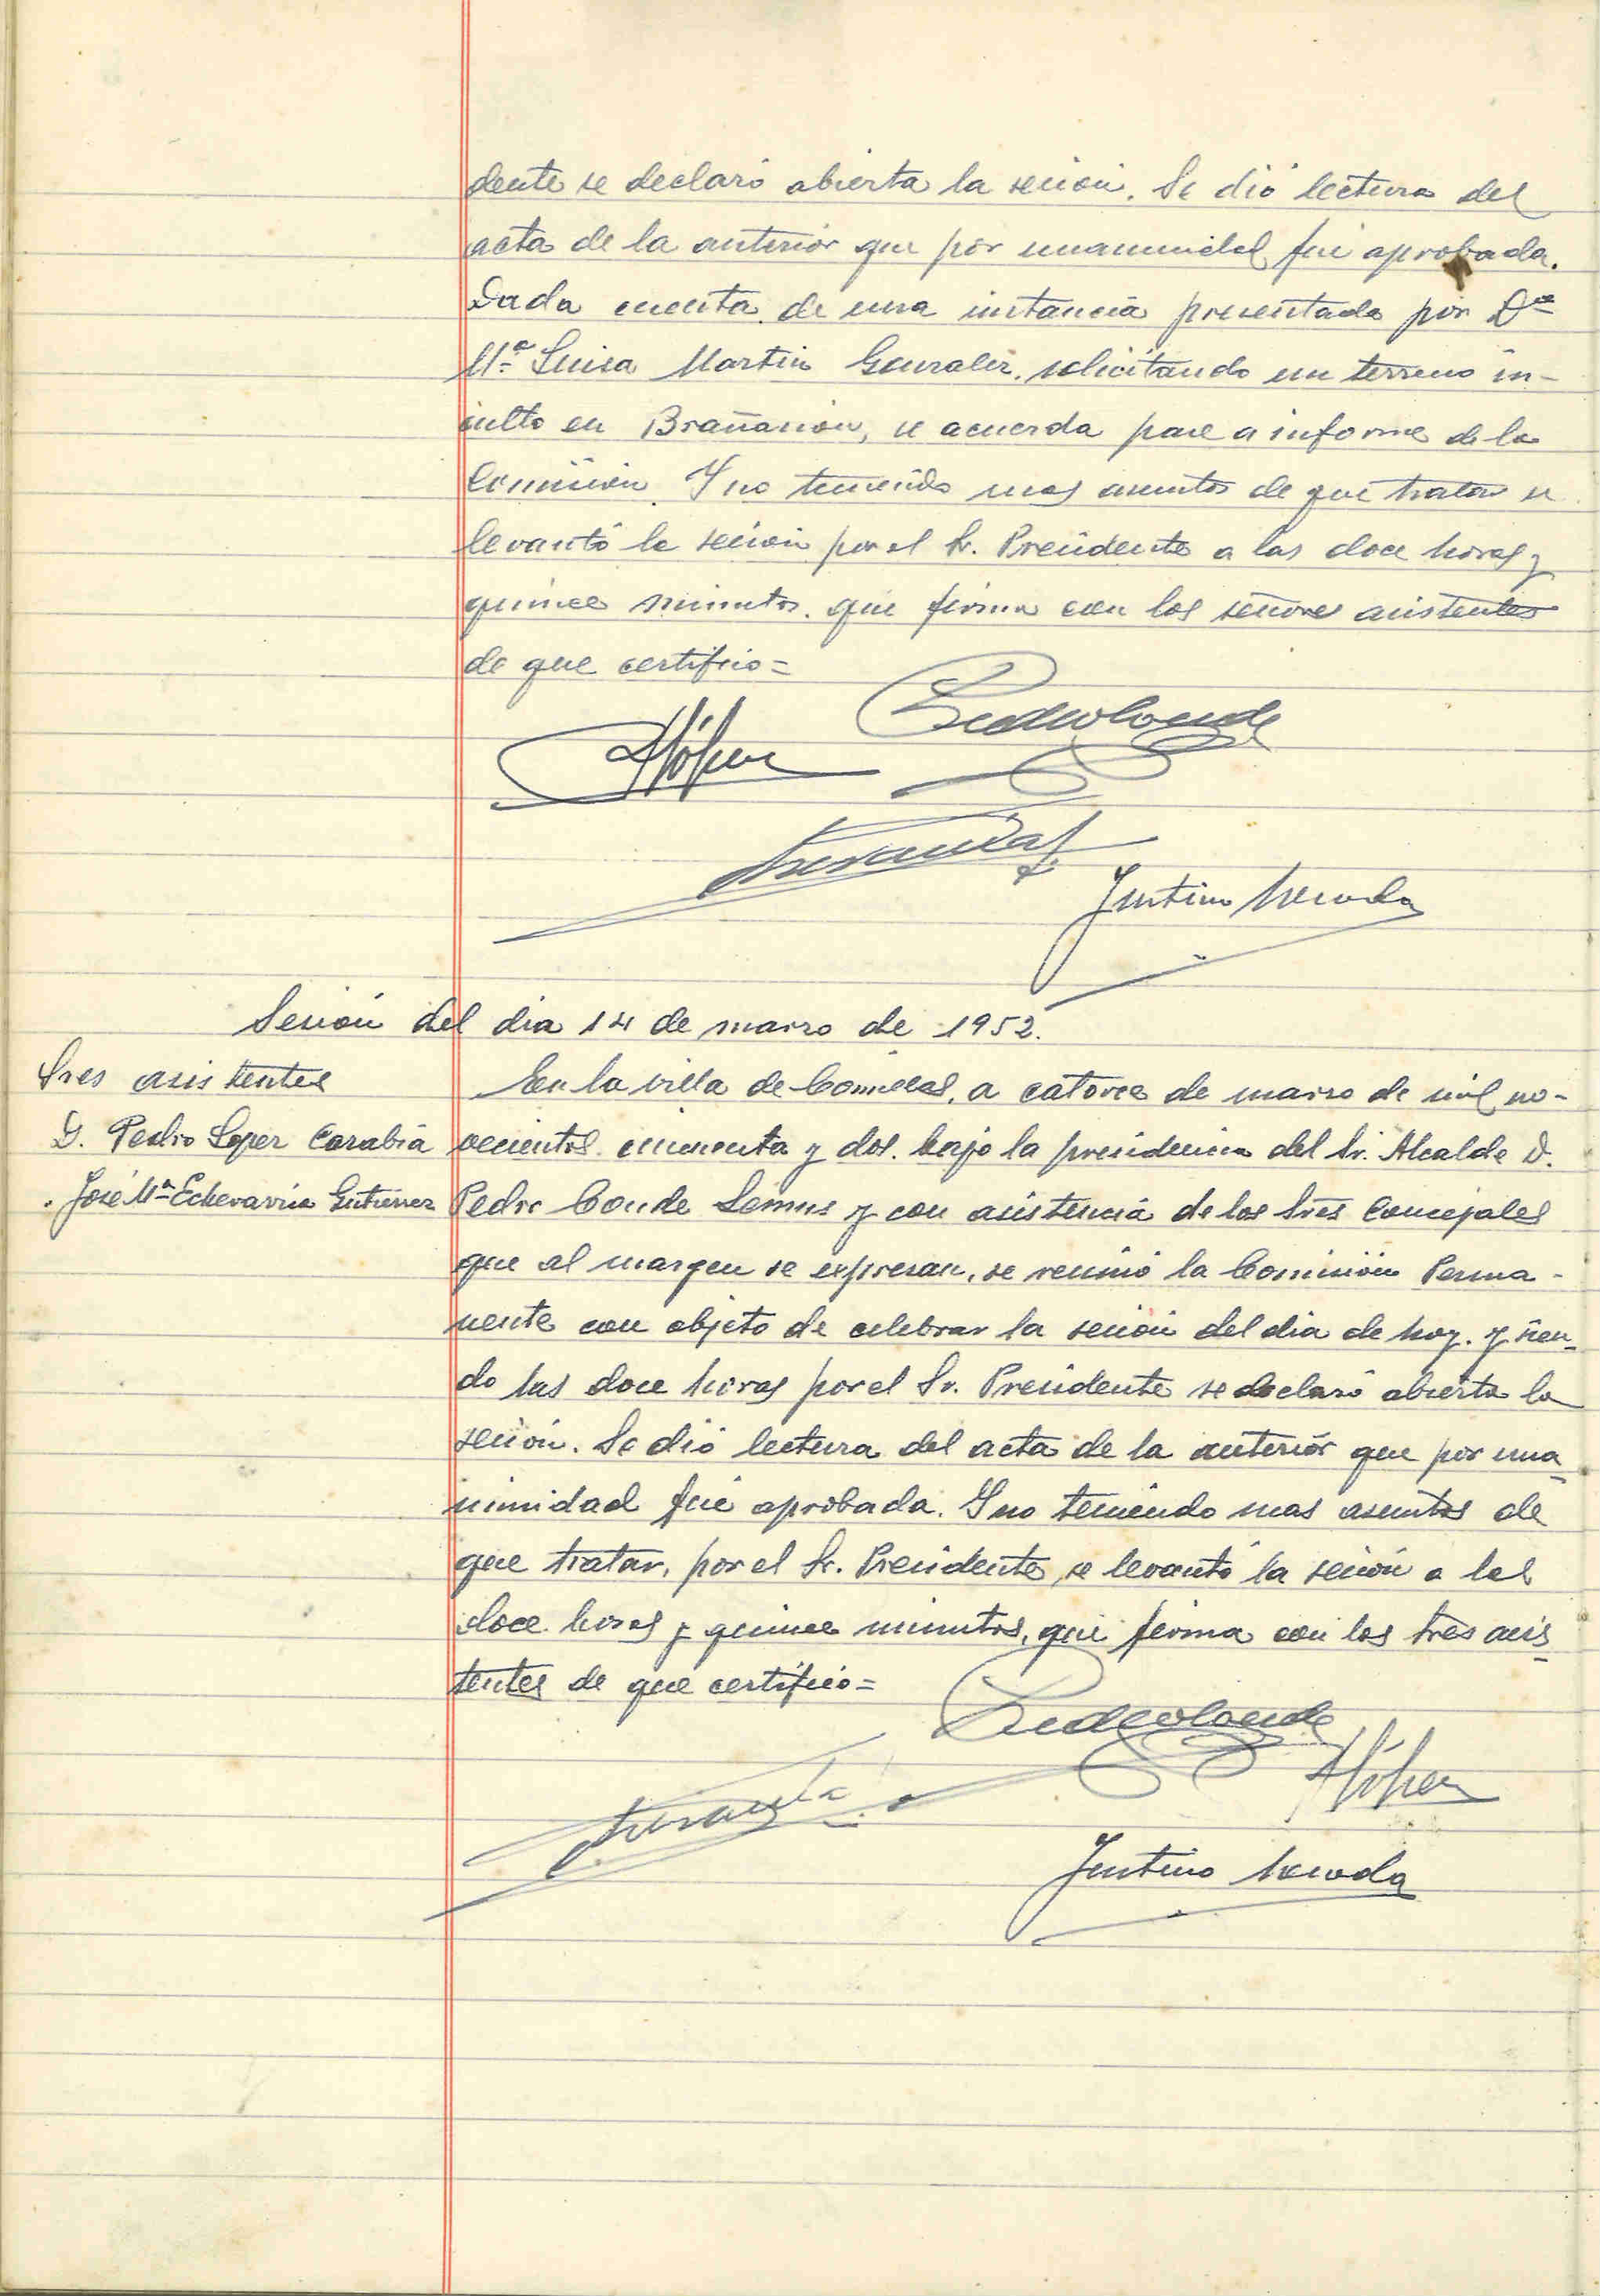 dente se declaró abierta la sesión. Se dió lectura del
acta de la anterior que por unanimidad fué aprobada.
Dada cuenta de una instancia presentada por Dª
Mª Luisa Martin Gonzalez, solicitando un terreno in-
culto en Brañarion, se acuerda pase a informe de la
Comisión. Y no teniendo mas asuntos de que tratar se
levantó la sesión por el Sr. Presidente a las doce horas y
quince minutos, que firma con los señores asistentes
de que certifico=
Pedro Conde
PLópez
Justino
Sesión del dia 14 de marzo de 1952.
Sres asistentes
D. Pedro Lopez Carabia
. José Mª Echevarria Gutierrez
En la villa de Comillas, a catorce de marzo de mil no-
vecientos cincuenta y dos, bajo la presidencia del Sr. Alcalde D.
Pedro Conde Lemus y con asistencia de los Sres Concejales
que al margen se expresan, se reunió la Comisión Perma-
nente con objeto de celebrar la sesión del dia de hoy. y sien-
do las doce horas por el Sr. Presidente se declaró abierta la
sesión. Se dió lectura del acta de la anterior que por una-
nimidad fué aprobada. Y no teniendo mas asuntos de
que tratar, por el Sr. Presidente, se levantó la sesión a las
doce horas y quince minutos, que firma con los Sres asis-
tentes de que certifico=
Pedro Conde
PLópez
Justino